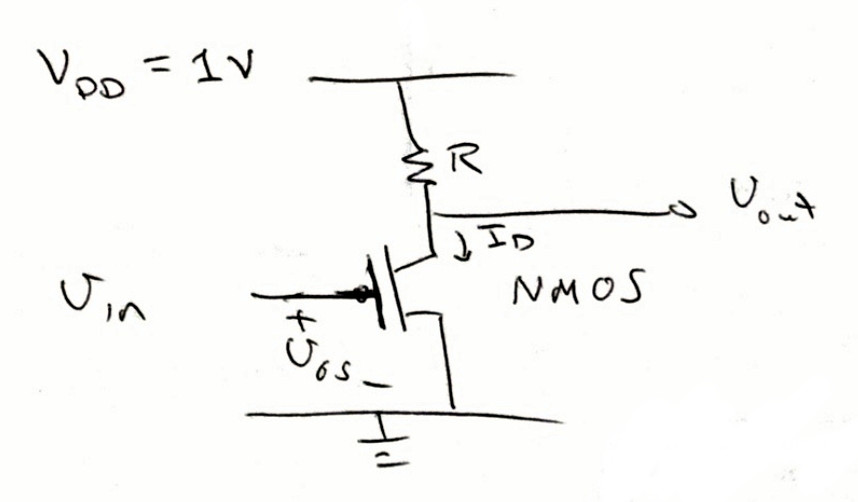 V_DD = 1V
R
V_out
I_D
NMOS
V_in
+
V_GS
-